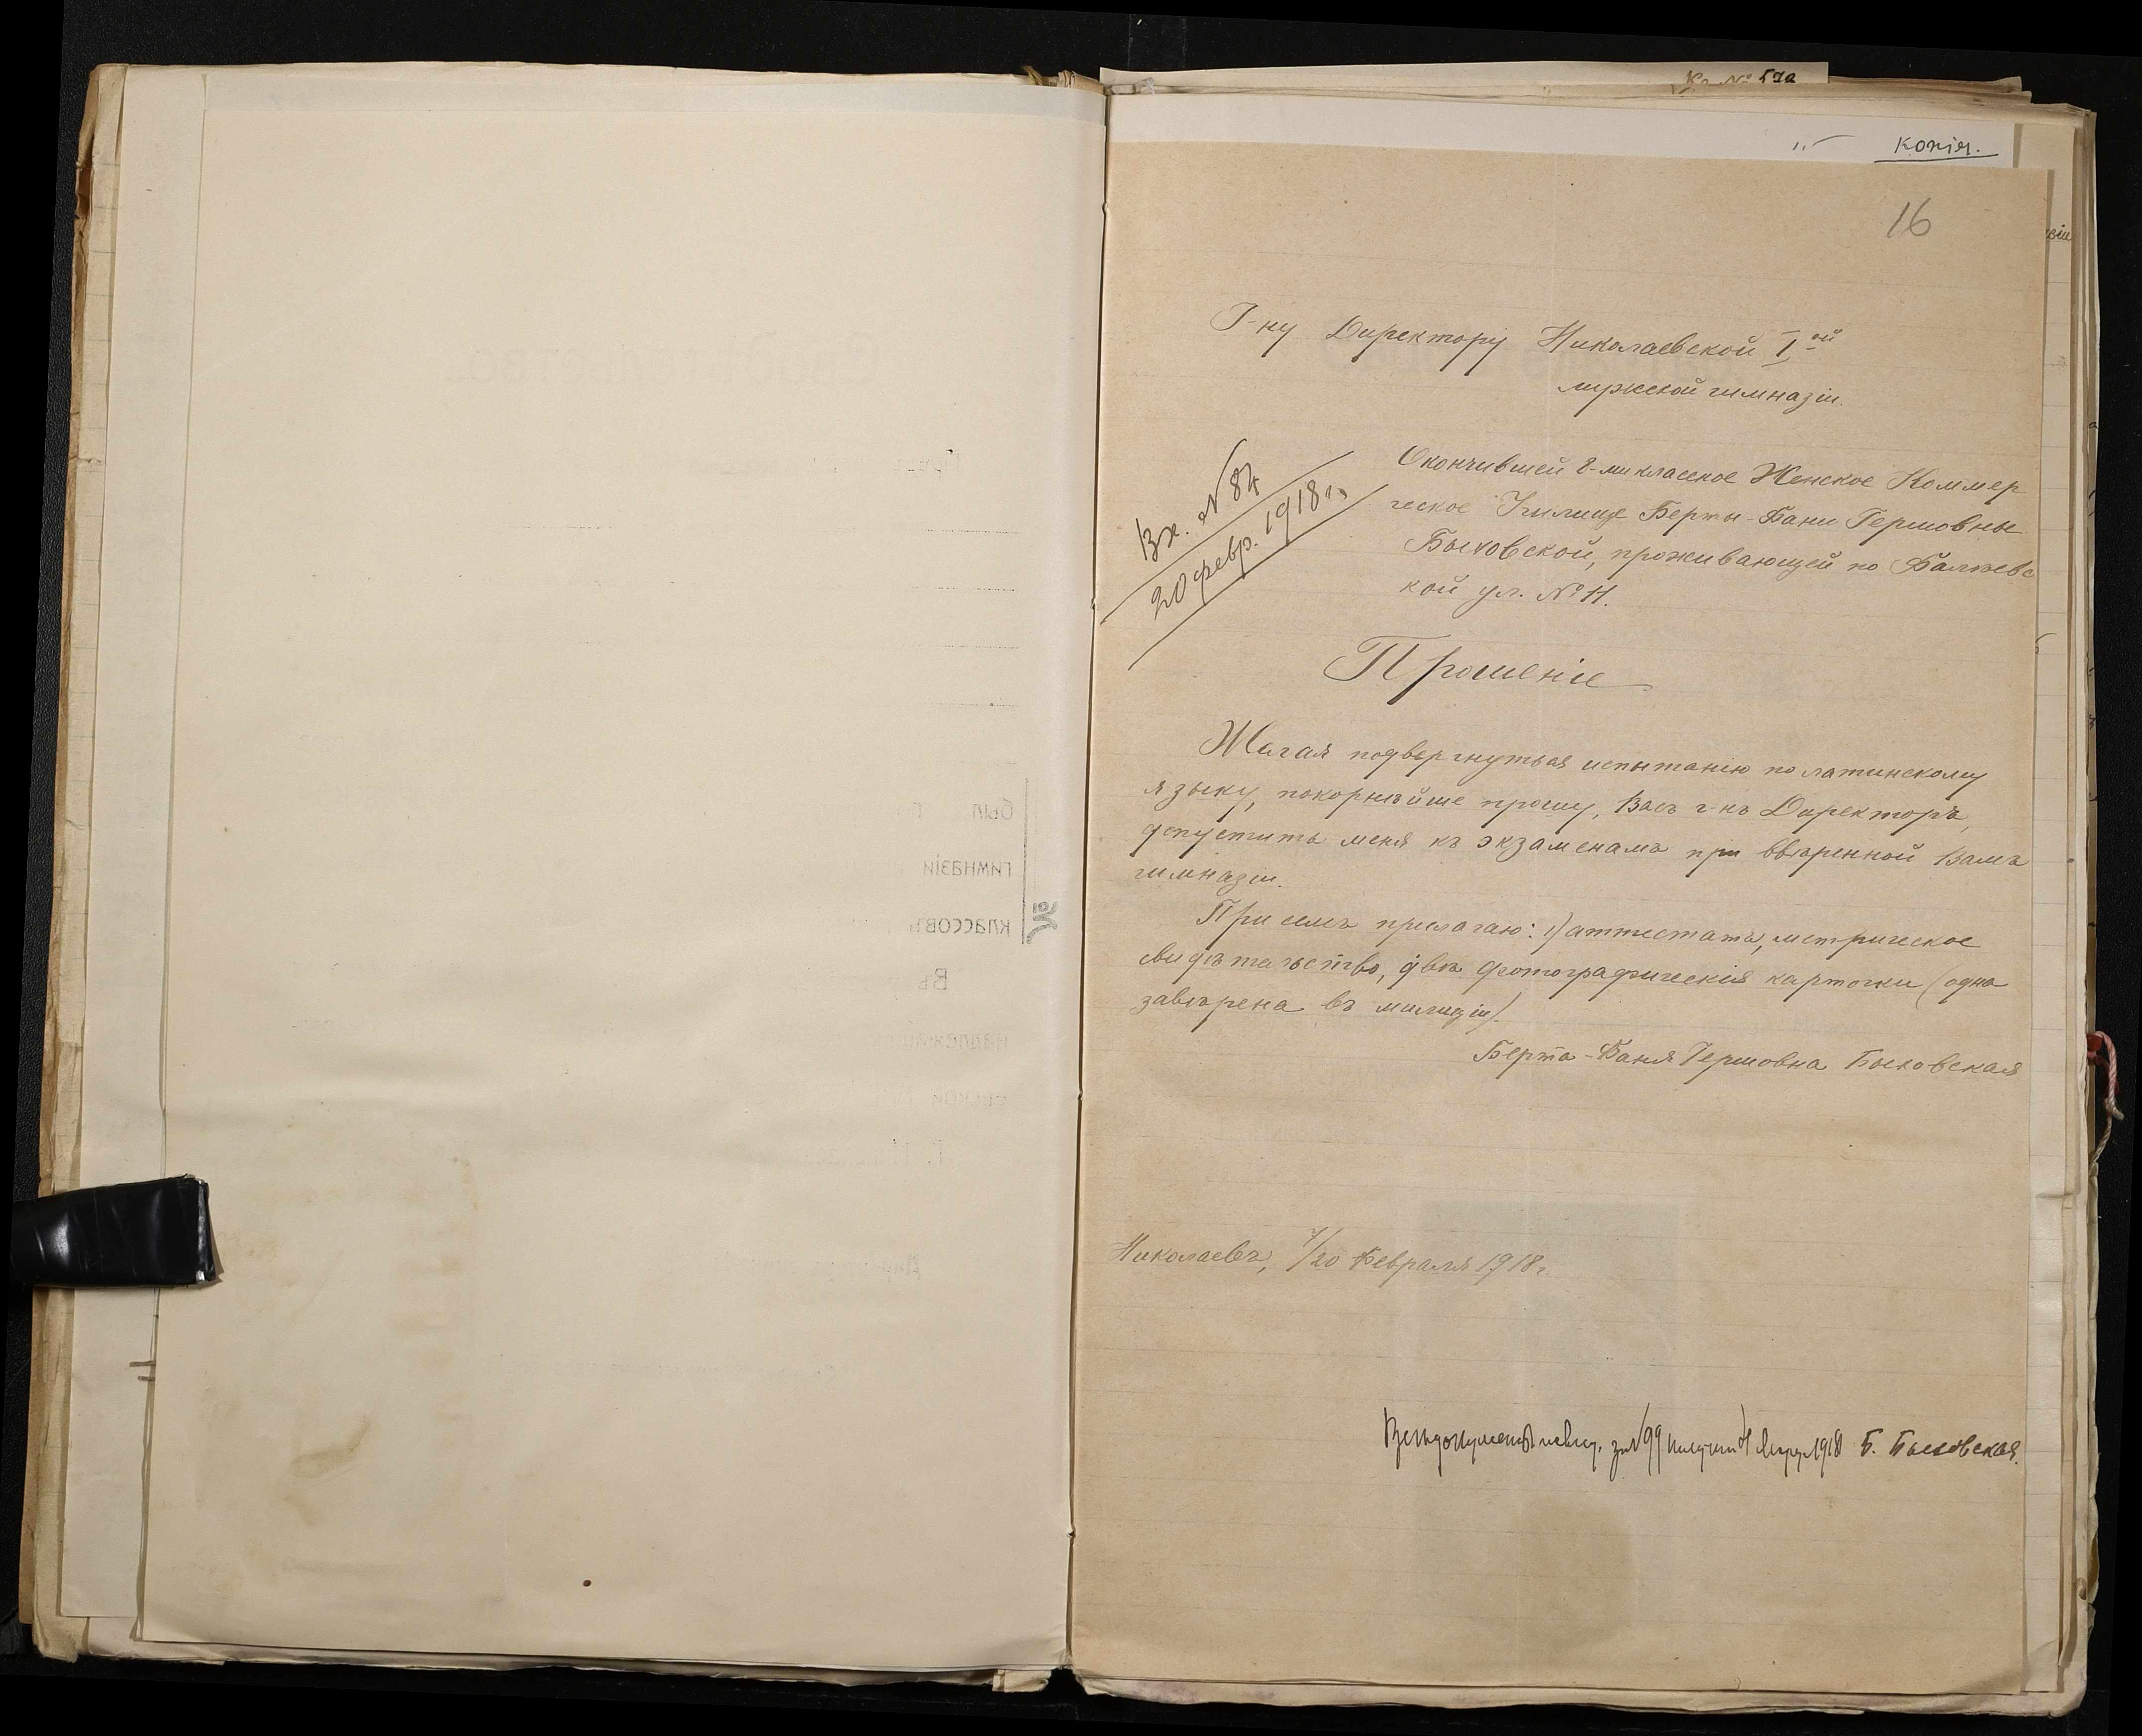 копія.
16
Г-ну Директору Николаевской I-ой
мужской гимназіи.
Вх. № 84
20 февр. 1918 г.
Окончившей 8-ми классное Женское Коммер
ческое Училище Берты-Фани Гершовны
Быховской, проживающей по
кой ул. № 11.
Прошеніе
Желая подвергнуться испытанію по латинскому
языку, покорнѣйше прошу, Васъ г-нъ Директоръ,
допустить меня къ экзаменамъ при ввѣренной Вамъ
гимназіи.
При семъ прилагаю: 1) аттестатъ, метрическое
свидѣтельство, двѣ фотографическія карточки (одна
завѣрена въ милиціи).
Берта-Фаня Гершовна Быховская
Николаевъ, 7/20 Февраля 1918 г.
за № 99 1918 Б. Быховская.
был
гимназіи
классовъ
Въ